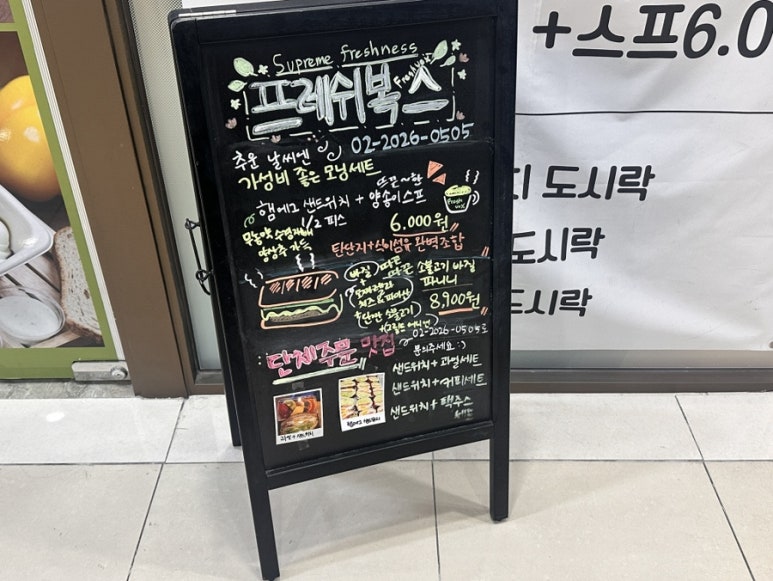 Supreme freshness
프레쉬복스
Freshvox
02-2026-0505
추운 날씨엔
가성비 좋은 모닝세트
뜨끈~한
햄에그 샌드위치 + 양송이스프
1/2 피스
Fresh
vox
6.000원
무농약 수경재배
양상추 가득
탄단지+식이섬유 완벽조합
바질
+
모짜렐라
치즈 &
+
단짠 소불고기
따끈
따끈
소불고기 바질
파니니
8,900원
단체주문 맛집
02-2026-0505로
문의주세요 :)
샌드위치 + 과일세트
샌드위치 + 커피세트
샌드위치 + 팩주스
세트
+스프6.0
도시락
도시락
도시락